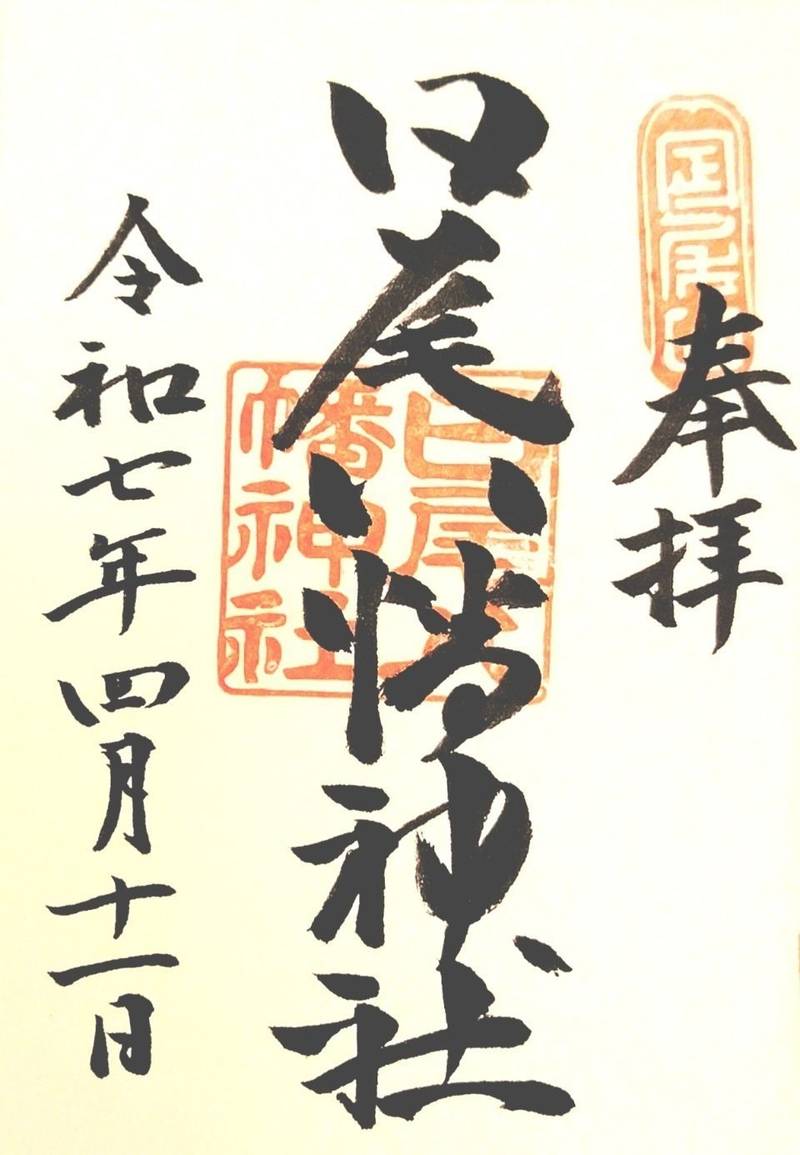 奉拝
日尾八幡神社
日尾八
幡神社
令和七年四月十一日